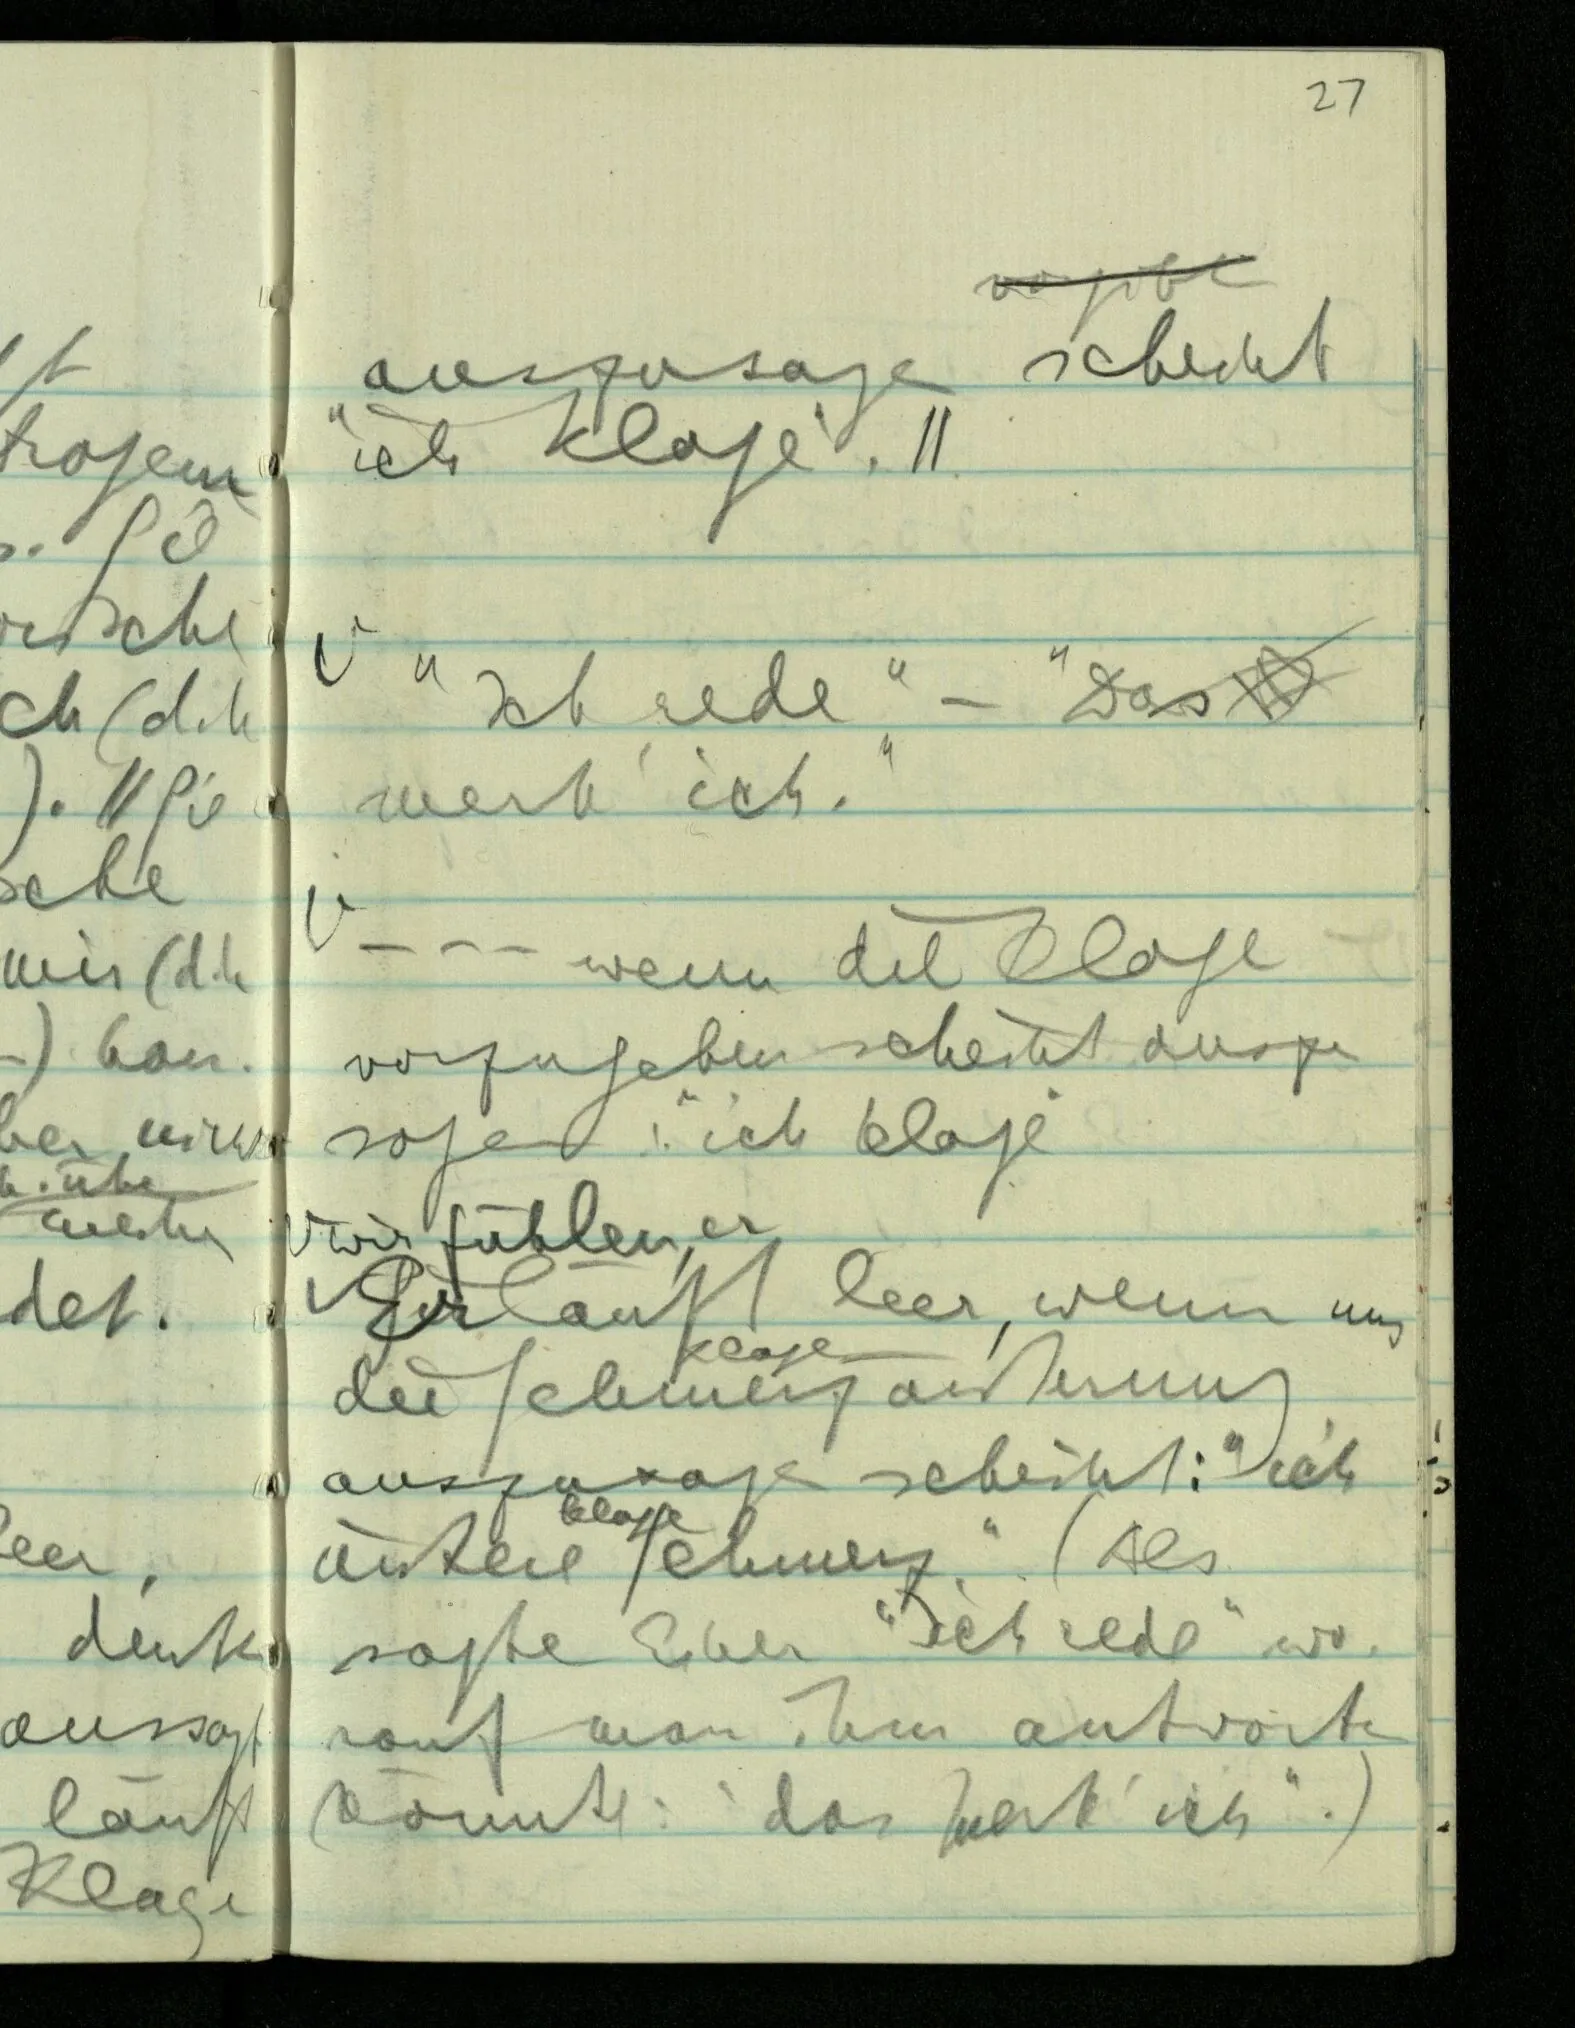 27
vorgibt
auszusagen scheint
"ich klage". ||
V "Ich rede" – "Das
merk' ich."
V – – – wenn die Klage
vorzugeben scheint auszu
sagen: "ich klage"
V wir fühlen, er
Er läuft leer, wenn uns
Klage
die Schmerzäusserung
auszusagen scheint: "ich
klage
äussere Schmerz." (Als
sagte Einer "Ich rede" wo-
rauf man ihm antworten
könnte: "das merk' ich".)
tragen
ch (d.h
). || Sie
sche
mir (d.h
–) kann.
det.
leer,
denk
aussagt
läuft
Klage